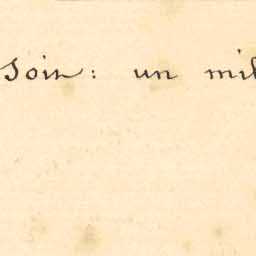 Soit: un mil